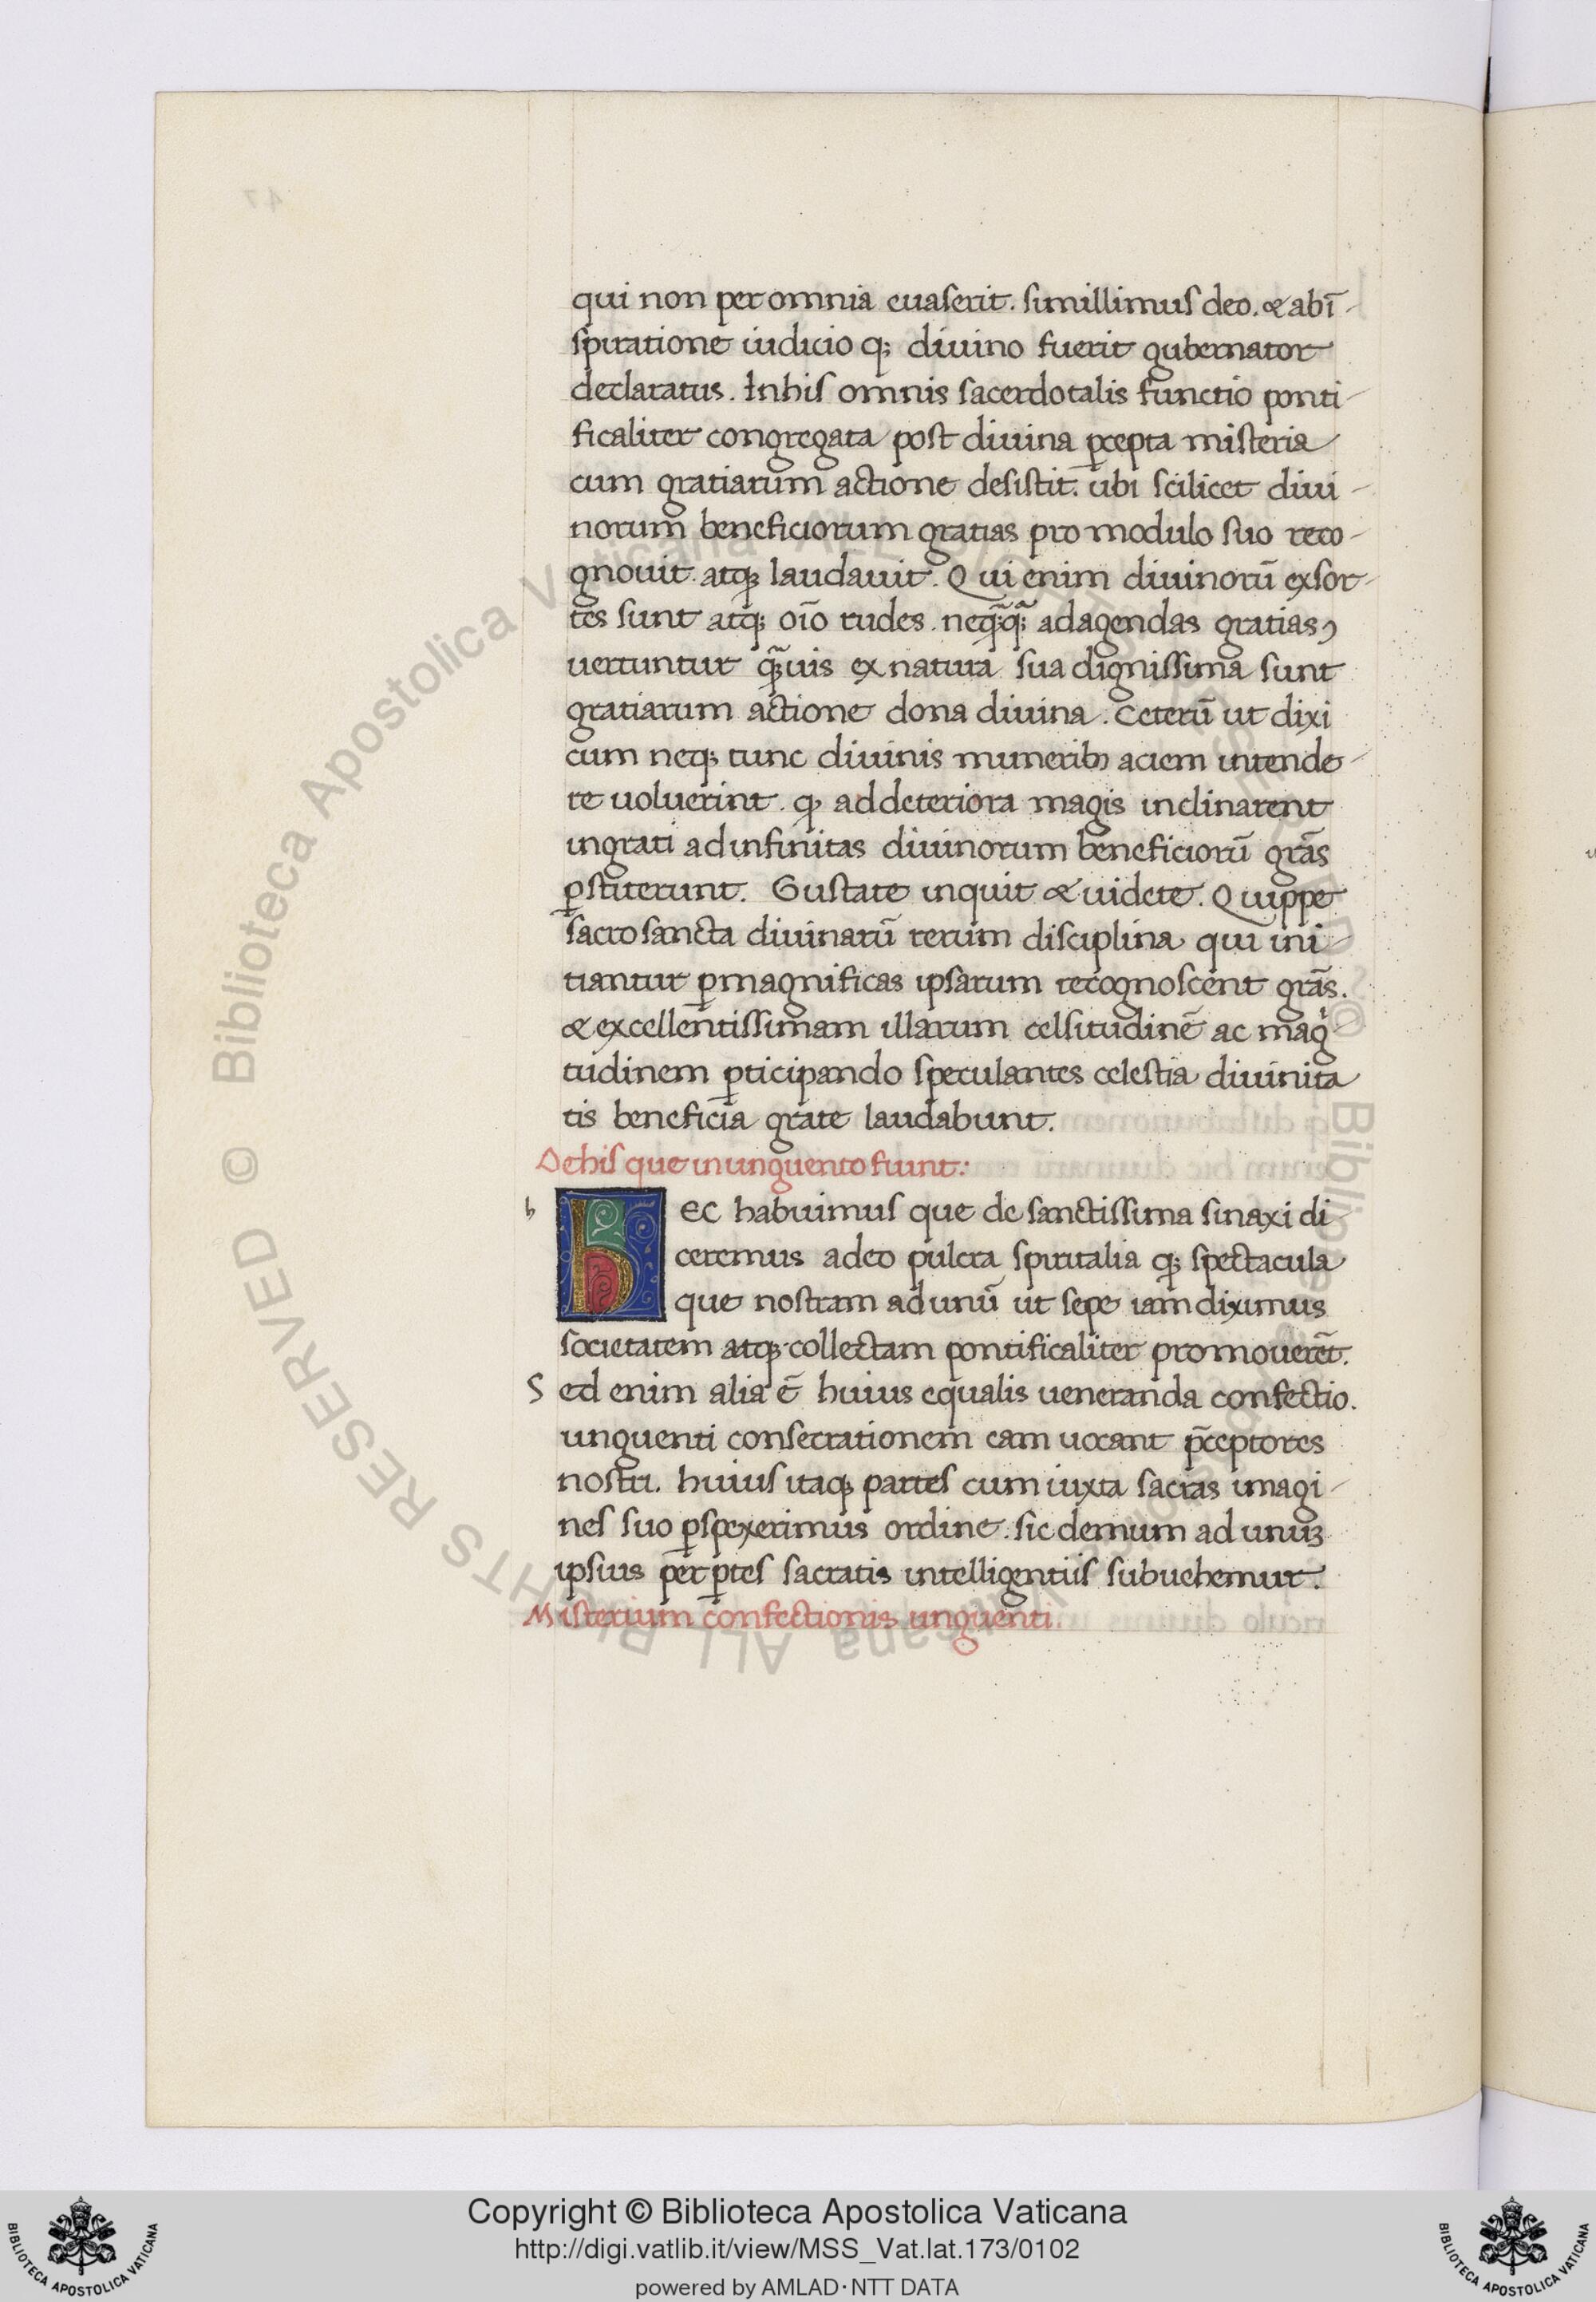 qui non per omnia euaserit. simillimus deo. & ab ī-
spiratione iudicio q; diuino fuerit gubernator
declaratus. In his omnis sacerdotalis functio ponti-
ficaliter congregata post diuina ꝑcepta misteria
cum gratiarum actione desistit. ubi scilicet diui-
norum beneficiorum gratias pro modulo suo reco-
gnouit. atq; laudauit. Qui enim diuinorū exsor-
tes sunt atq; oīo rudes. neq̄q̄; ad agendas gratias,
uertuntur q̄uis ex natura sua dignissima sunt
gratiarum actione dona diuina. Ceterū ut dixi
cum neq; tunc diuinis munerib; aciem intende-
re uoluerint. q; ad deteriora magis inclinarent
ingrati ad infinitas diuinorum beneficiorū grās
ꝑstiterunt. Gustate inquit & uidete. Quippe
sacrosancta diuinarū rerum disciplina qui ini-
tiantur ꝑmagnificas ipsarum recognoscent grās.
& excellentissimam illarum celsitudinē ac mag̍-
tudinem ꝑticipando speculantes celestia diuinita
tis beneficia grate laudabunt.
De his que in unguento fiunt:
h
HEC habuimus que de sanctissima sinaxi di-
ceremus adeo pulcra spiritalia q; spectacula
que nostram ad unū ut sepe iam diximus
societatem atq; collectam pontificaliter promouerēt.
Sed enim alia ē huius equalis ueneranda confectio.
unguenti consecrationem eam uocant p̄ceptores
nostri. huius itaq; partes cum iuxta sacras imagi-
nes suo ꝑspexerimus ordine. sic demum ad unuꝫ
ipsius per ꝑtes sacratis intelligentiis subuehemur.
Misterium confectionis unguenti.
47
© Biblioteca Apostolica Vaticana ALL RIGHTS RESERVED
Copyright © Biblioteca Apostolica Vaticana
http://digi.vatlib.it/view/MSS_Vat.lat.173/0102
powered by AMLAD·NTT DATA
BIBLIOTECA APOSTOLICA VATICANA
BIBLIOTECA APOSTOLICA VATICANA